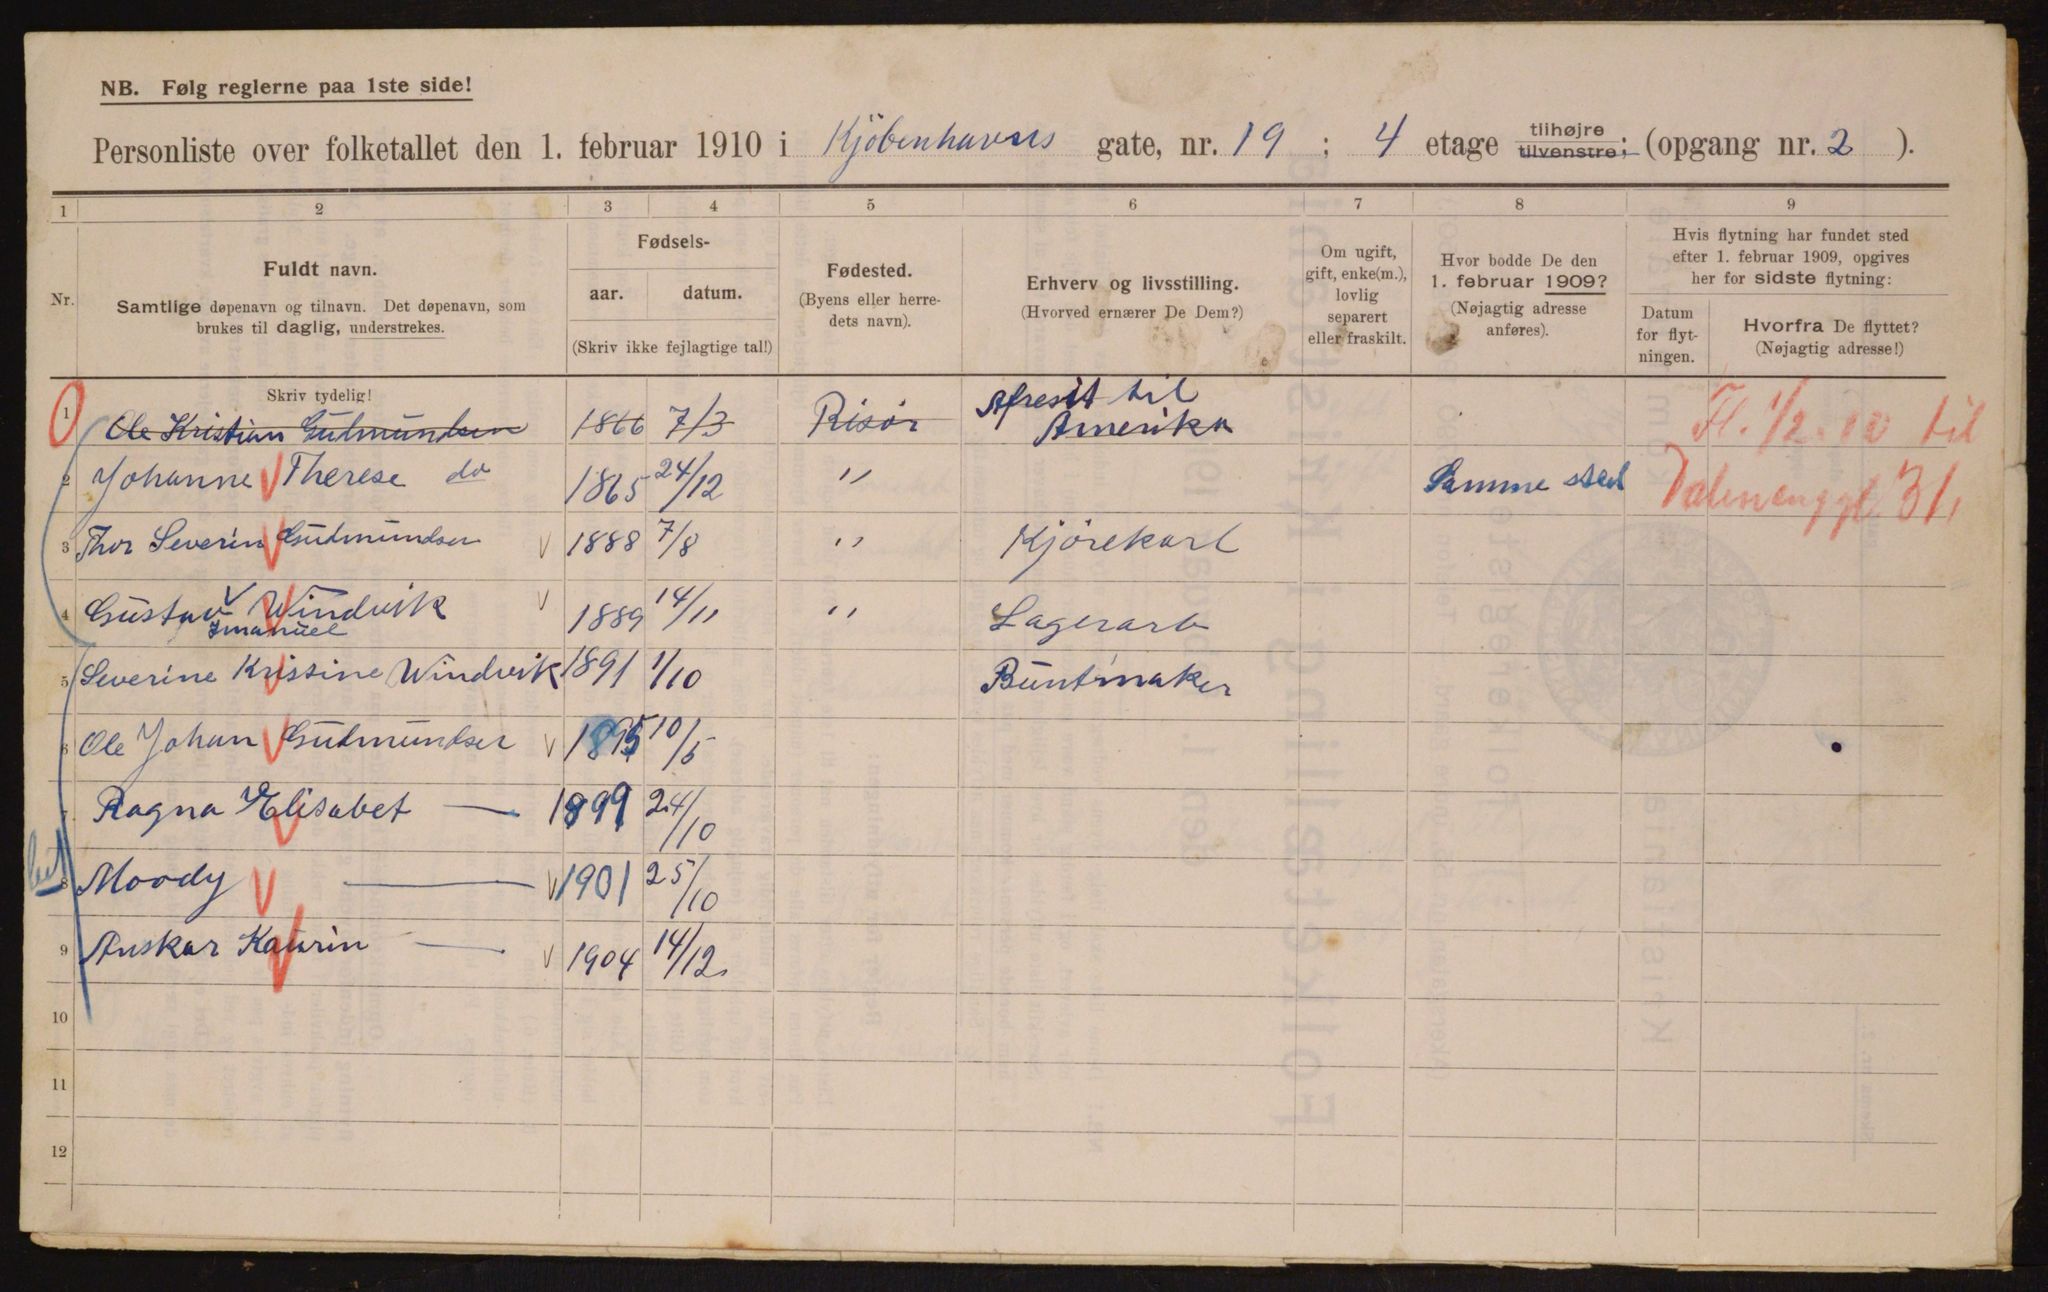 NB. Følg reglerne paa 1ste side!
Personliste over folketallet den 1. februar 1910 i Kjöbenhavns gate, nr. 19 ; 4 etage tilhøjre tilvenstre; (opgang nr. 2 ).
1 2 3 4 5 6 7 8 9
Nr.
Fuldt navn.
Samtlige døpenavn og tilnavn. Det døpenavn, som
brukes til daglig, understrekes.
Fødsels-
aar. datum.
(Skriv ikke fejlagtige tal!)
Fødested.
(Byens eller herre-
dets navn).
Erhverv og livsstilling.
(Hvorved ernærer De Dem?)
Om ugift,
gift, enke(m.),
lovlig
separert
eller fraskilt.
Hvor bodde De den
1. februar 1909?
(Nøjagtig adresse
anføres).
Hvis flytning har fundet sted
efter 1. februar 1909, opgives
her for sidste flytning:
Datum
for flyt-
ningen.
Hvorfra De flyttet?
(Nøjagtig adresse!)
Skriv tydelig!
1 Ole Kristian Gudmundsen 1866 7/3 Risör Afreist til Amerika Fl. 1/2 10 til
2 Johanne Therese do 1865 24/12 " Samme sted 31
3 Thor Severin Gudmundsen 1888 7/8 " Kjörekarl
4 Gustav Imanuel Windvik 1889 14/11 " Lagerarb
5 Severine Kristine Windvik 1891 1/10 Buntmaker
6 Ole Johan Gudmundsen 1895 10/5
7 Ragna Elisabet — 1899 24/10
8 Moody — 1901 25/10
9 Anskar Kaurin — 1904 14/12
10
11
12